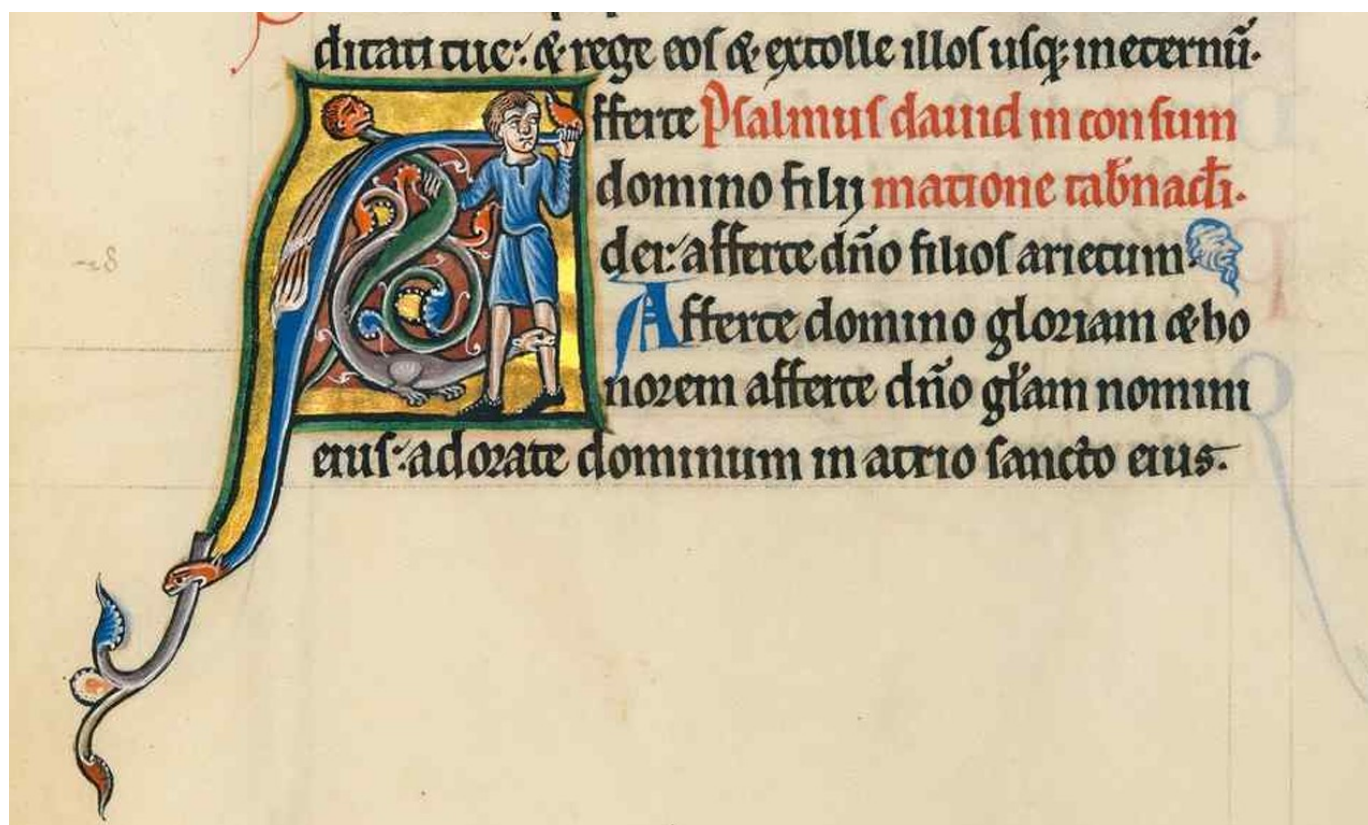 ditati tue: & rege eos & extolle illos usq; in eternū.
fferte Psalmus dauid in consum
domino filij matione tab̄nacl̄i.
dei: afferte dn̄o filios arietum.
Afferte domino gloriam & ho
norem afferte dn̄o gl̄am nomini
eius: adorate dominum in atrio sancto eius.